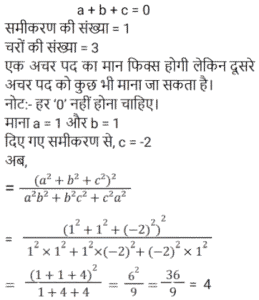 a + b + c = 0
समीकरण की संख्या = 1
चरों की संख्या = 3
एक अचर पद का मान फिक्स होगी लेकिन दूसरे
अचर पद को कुछ भी माना जा सकता है।
नोट:- हर ‘0’ नहीं होना चाहिए।
माना a = 1 और b = 1
दिए गए समीकरण से, c = -2
अब,
= (a² + b² + c²)² / a²b² + b²c² + c²a²
= (1² + 1² + (-2)²)² / 1² × 1² + 1²×(-2)² + (-2)² × 1²
= (1 + 1 + 4)² / 1 + 4 + 4 = 6² / 9 = 36 / 9 = 4